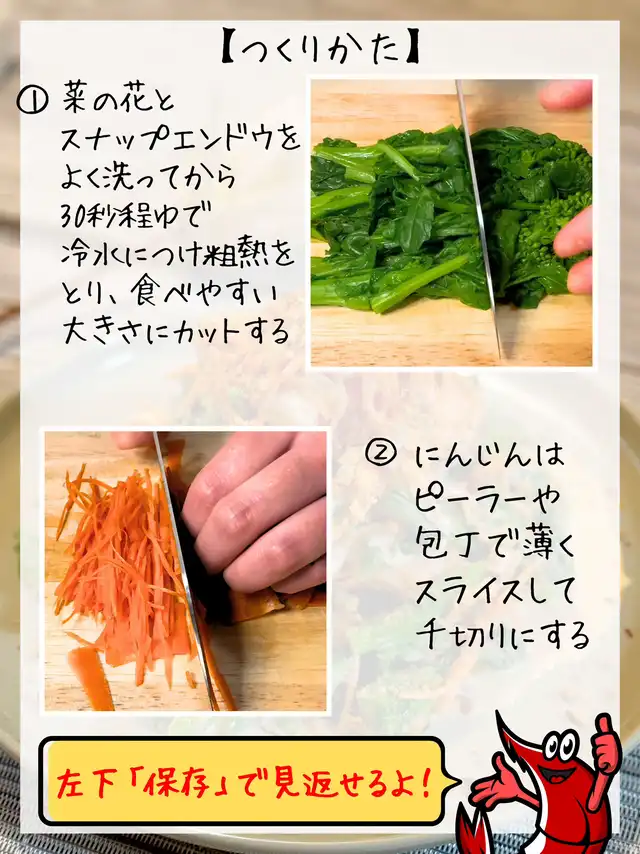 【つくりかた】
① 菜の花と
スナップエンドウを
よく洗ってから
30秒程ゆで
冷水につけ粗熱を
とり、食べやすい
大きさにカットする
② にんじんは
ピーラーや
包丁で薄く
スライスして
千切りにする
左下「保存」で見返せるよ!